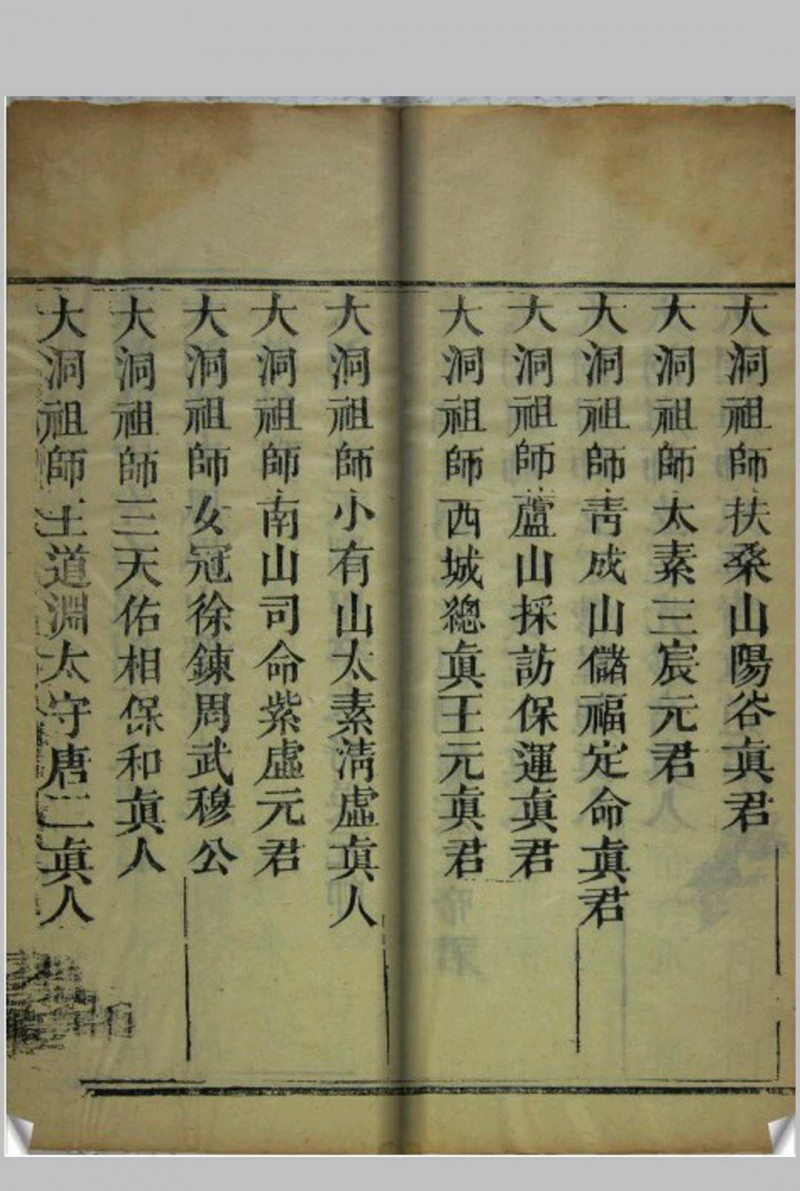 大洞祖師扶桑山陽谷真君
大洞祖師太素三宸元君
大洞祖師靑成山儲福定命真君
大洞祖師蘆山採訪保運真君
大洞祖師西城總真王元真君
大洞祖師小有山太素淸虛真人
大洞祖師南山司命紫虛元君
大洞祖師女冠徐鍊周武穆公
大洞祖師三天佑相保和真人
大洞祖師王道淵太守唐二真人